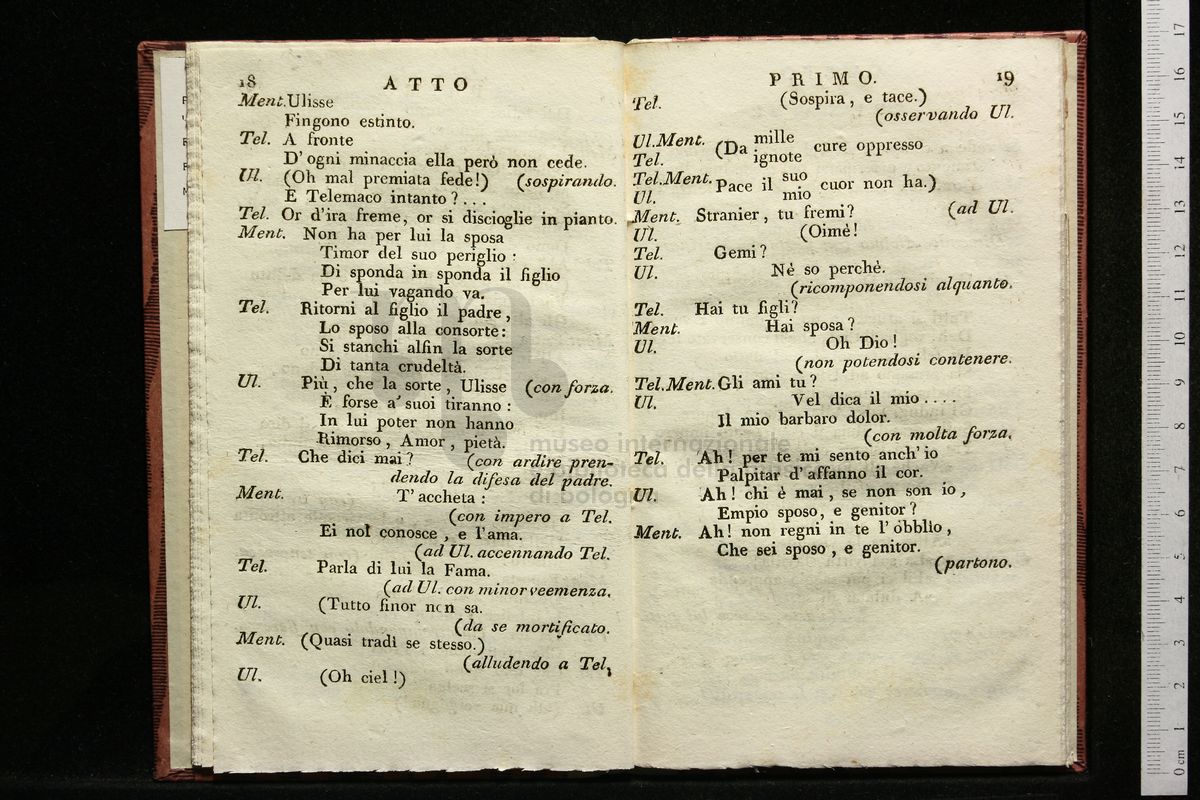 18 ATTO
Ment. Ulisse
Fingono estinto.
Tel. A fronte
D' ogni minaccia ella però non cede.
Ul. (Oh mal premiata fede!) (sospirando.
E Telemaco intanto?...
Tel. Or d'ira freme, or si discioglie in pianto.
Ment. Non ha per lui la sposa
Timor del suo periglio:
Di sponda in sponda il figlio
Per lui vagando va.
Tel. Ritorni al figlio il padre,
Lo sposo alla consorte:
Si stanchi alfin la sorte
Di tanta crudeltà.
Ul. Più, che la sorte, Ulisse (con forza.
È forse a' suoi tiranno:
In lui poter non hanno
Rimorso, Amor, pietà.
Tel. Che dici mai? (con ardire pren-
dendo la difesa del padre.
Ment. T' accheta:
(con impero a Tel.
Ei nol conosce, e l'ama.
(ad Ul. accennando Tel.
Tel. Parla di lui la Fama.
(ad Ul. con minor veemenza.
Ul. (Tutto finor non sa.
(da se mortificato.
Ment. (Quasi tradì se stesso.)
(alludendo a Tel.
Ul. (Oh ciel!)
PRIMO. 19
Tel. (Sospira, e tace.)
(osservando Ul.
Ul.Ment. (Da mille cure oppresso
Tel. ignote
Tel.Ment. Pace il suo cuor non ha.)
Ul. mio
Ment. Stranier, tu fremi? (ad Ul.
Ul. (Oimè!
Tel. Gemi?
Ul. Nè so perchè.
(ricomponendosi alquanto.
Tel. Hai tu figli?
Ment. Hai sposa?
Ul. Oh Dio!
(non potendosi contenere.
Tel.Ment. Gli ami tu?
Ul. Vel dica il mio....
Il mio barbaro dolor.
(con molta forza.
Tel. Ah! per te mi sento anch' io
Palpitar d' affanno il cor.
Ul. Ah! chi è mai, se non son io,
Empio sposo, e genitor?
Ment. Ah! non regni in te l' obblio,
Che sei sposo, e genitor.
(partono.
museo internazionale
e biblioteca della musica
di bologna
0 cm 1 2 3 4 5 6 7 8 9 10 11 12 13 14 15 16 17